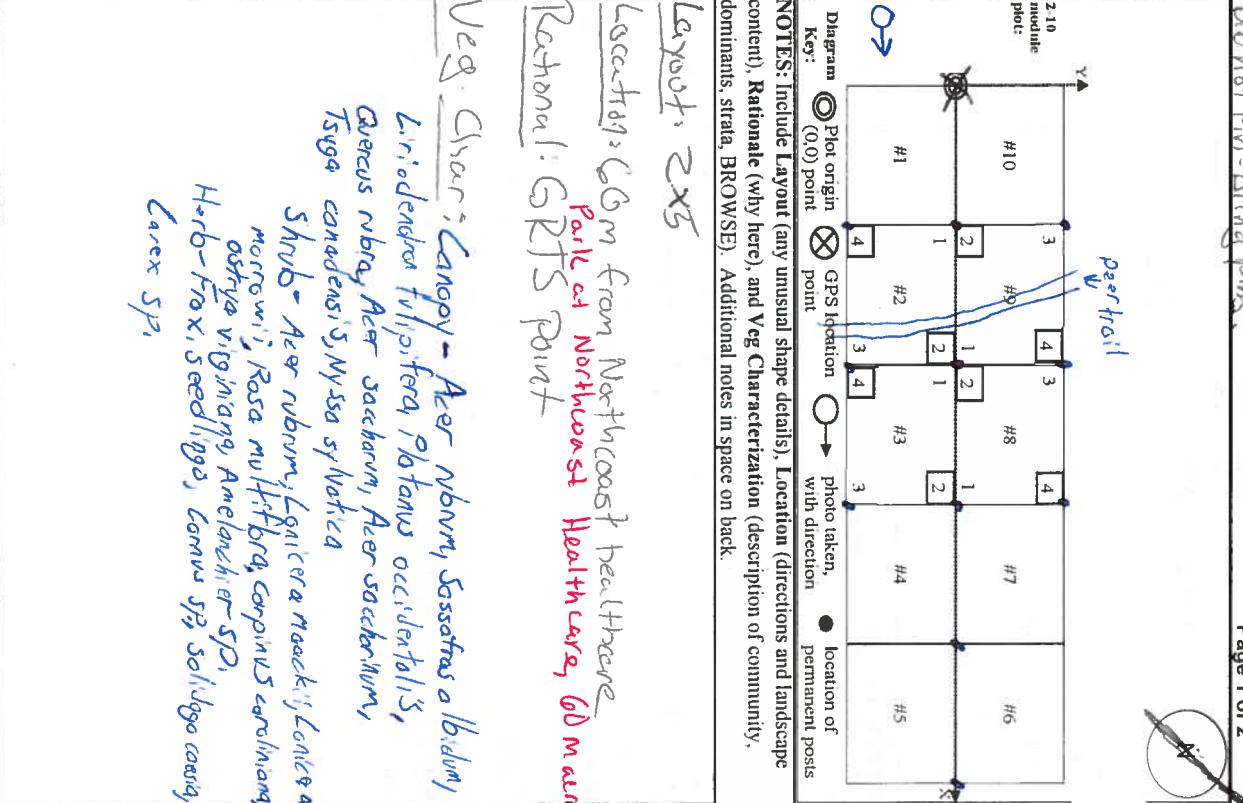 Page 1 of 2
2-10
module
plot:
Y
X
#10
#9
#8
#7
#6
#1
#2
#3
#4
#5
3
4
3
4
2
1
2
1
4
1
2
1
2
3
4
3
Deer trail
Diagram Key:
Plot origin (0,0) point
GPS location point
photo taken, with direction
location of permanent posts
NOTES: Include Layout (any unusual shape details), Location (directions and landscape
content), Rationale (why here), and Veg Characterization (description of community,
dominants, strata, BROWSE). Additional notes in space on back.
Layout: 2x5
Location: 60m from Northcoast healthcare
Park at Northcoast Healthcare, 60 m
Rational: GRTS point
Veg. Char: Canopy - Acer rubrum, Sassafras albidum,
Liriodendron tulipifera, Platanus occidentalis,
Quercus rubra, Acer saccharum, Acer saccharinum,
Tsuga canadensis, Nyssa sylvatica
Shrub - Acer rubrum, Lonicera maackii, Lonicera
morrowii, Rosa multiflora, Carpinus caroliniana
ostrya virginiana, Amelanchier sp.
Herb - Frax. seedlings, Cornus sp, Solidago caesia,
Carex sp.